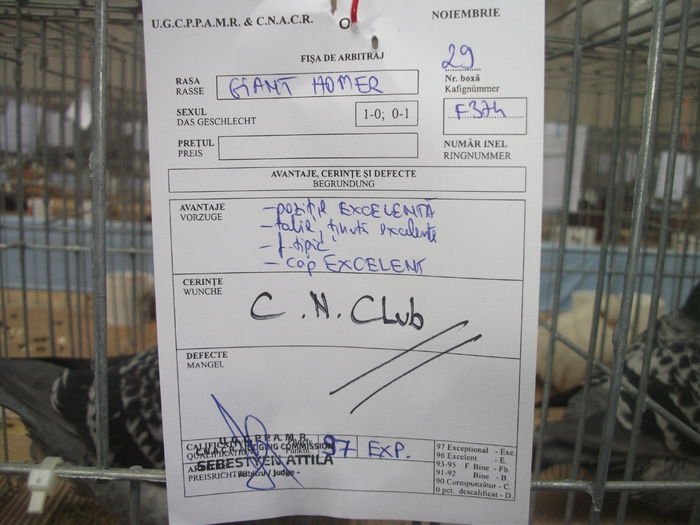 U.G.C.P.P.A.M.R. & C.N.A.C.R.
NOIEMBRIE
FIȘA DE ARBITRAJ
29
RASA
RASSE
GIANT HOMER
Nr. boxă
Kafignümmer
SEXUL
DAS GESCHLECHT
1-0; 0-1
F374
PREȚUL
PREIS
NUMĂR INEL
RINGNUMMER
AVANTAJE, CERINȚE ȘI DEFECTE
BEGRUNDUNG
AVANTAJE
VORZUGE
- poziție EXCELENTĂ
- talie, ținută excelente
- f. tipic
- cap EXCELENT
CERINȚE
WUNCHE
C.N. Club
DEFECTE
MANGEL
U.G.C.P.P.A.M.R.
97 EXP.
SEBESTYEN ATTILA
Arbitru / Judge
PREISRICHTER
97 Exceptional - Exc.
96 Excelent - E.
93-95 F. Bine - Fb.
91-92 Bine - B.
90 Corespunzător - C
0 pct. descalificat - D.